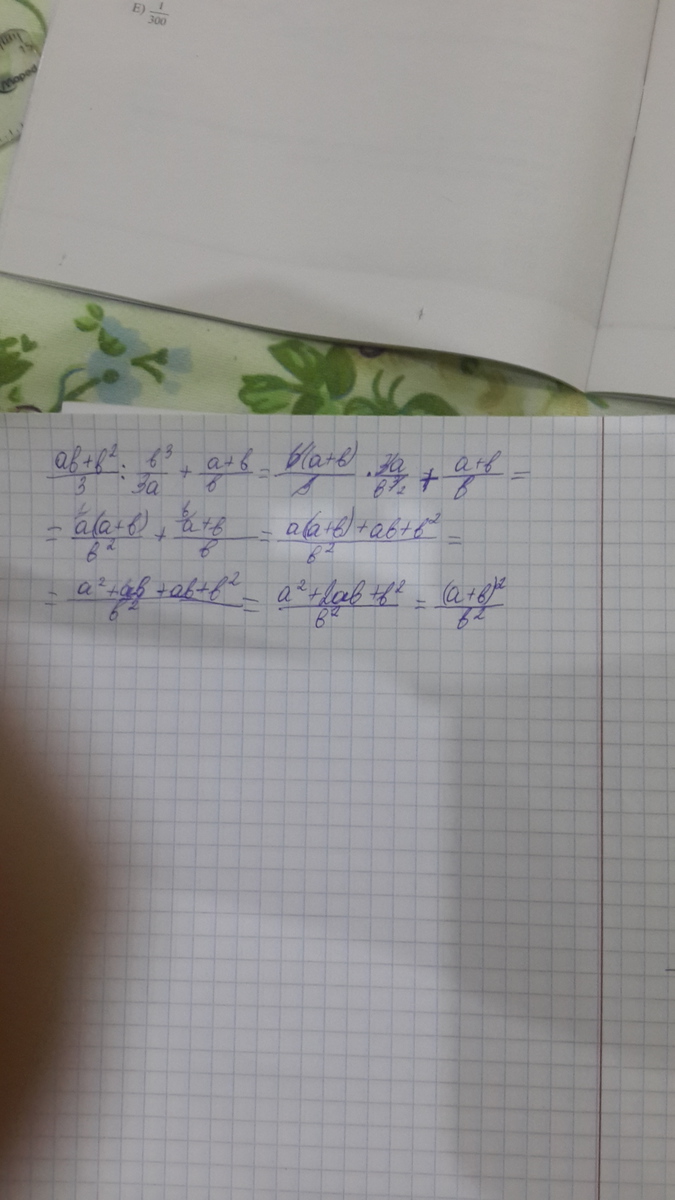 E) 1/300
Мороз
(ab+b²)/3 : b³/3a + (a+b)/b = b(a+b)/3 · 3a/b³₂ + (a+b)/b =
= a(a+b)/b² + (a+b)/b = (a(a+b)+ab+b²)/b² =
= (a²+ab+ab+b²)/b² = (a²+2ab+b²)/b² = (a+b)²/b²